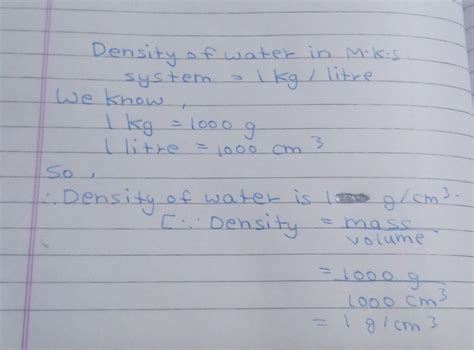 Density of water in M.K.S
system = 1 kg / litre
We know,
1 kg = 1000 g
1 litre = 1000 cm³
So,
∴ Density of water is 1 g/cm³.
[∵ Density = mass
volume.
= 1000 g
1000 cm³
= 1 g/cm³